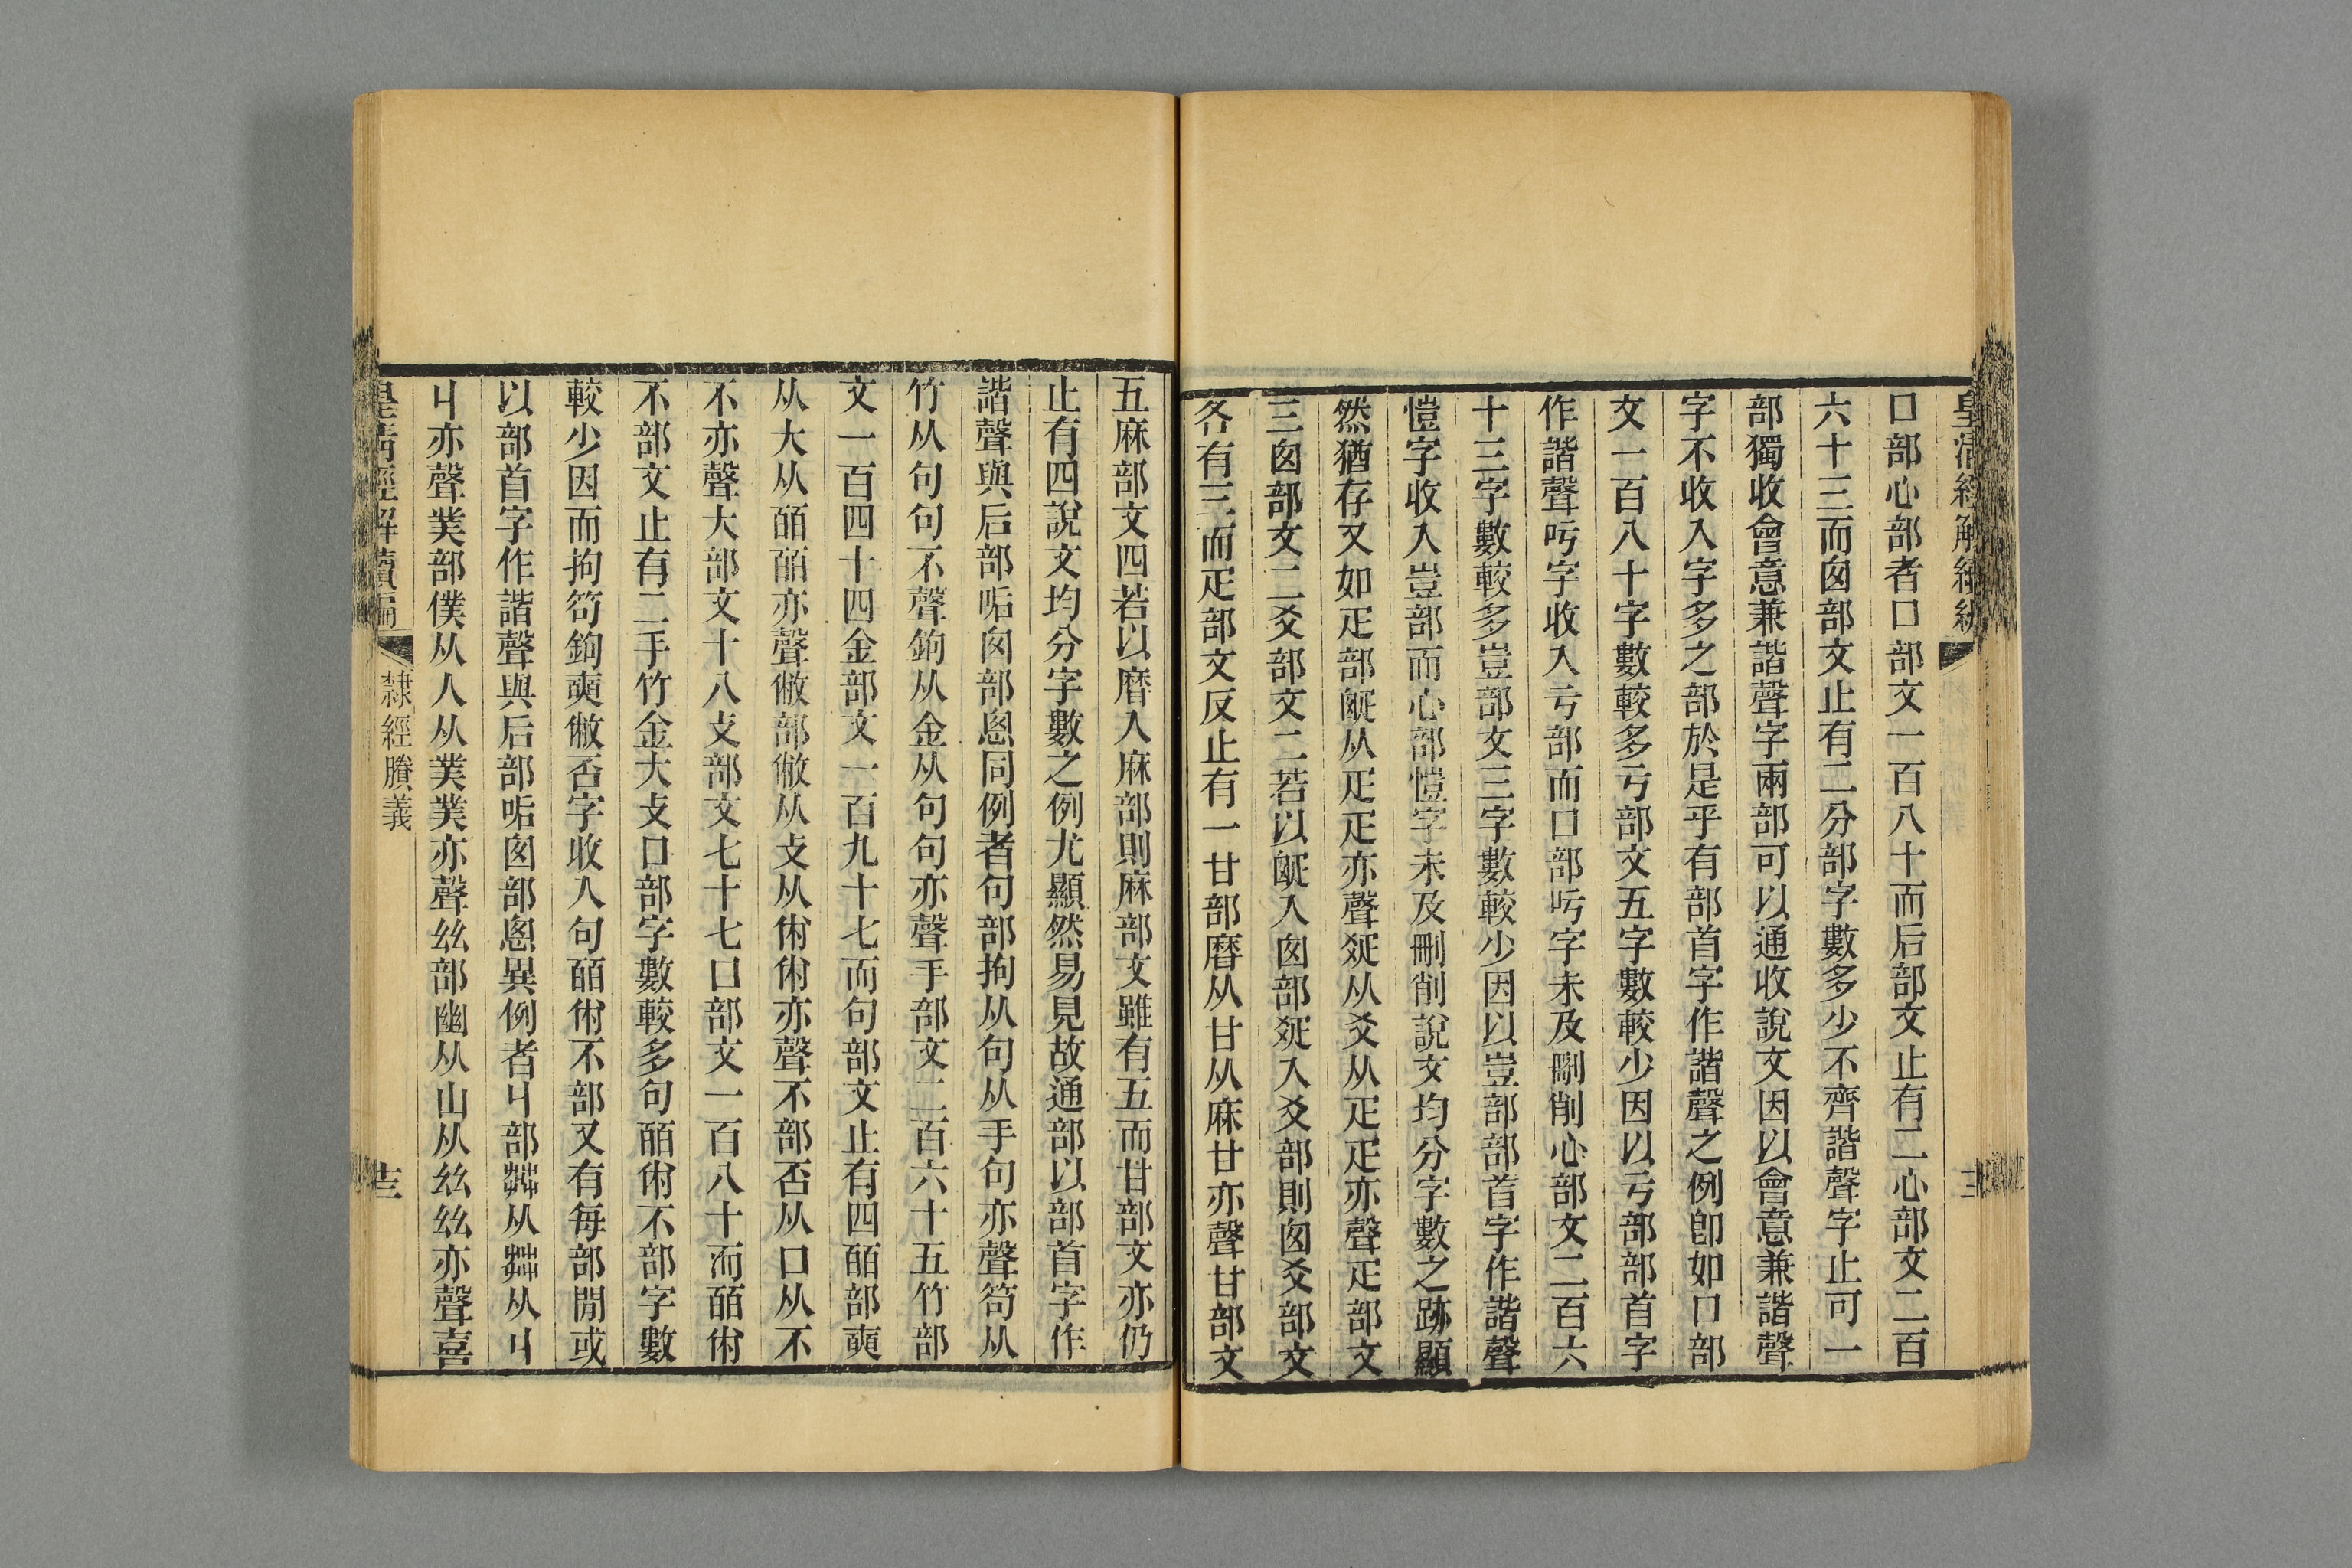 口部心部者口部文一百八十而后部文止有二心部文二百
六十三而囪部文止有二分部字數多少不齊諧聲字止可一
部獨收會意兼諧聲字兩部可以通收說文因以會意兼諧聲
字不收入字多之部於是乎有部首字作諧聲之例卽如口部
文一百八十字數較多亏部文五字數較少因以亏部部首字
作諧聲吁字收入亏部而口部吁字未及刪削心部文二百六
十三字數較多豈部文三字數較少因以豈部部首字作諧聲
愷字收入豈部而心部愷字未及刪削說文均分字數之跡顯
然猶存又如疋部䟽从疋疋亦聲㸚从爻从疋疋亦聲疋部文
三囪部文二爻部文二若以䟽入囪部㸚入爻部則囪爻部文
各有三而疋部文反止有一甘部磿从甘从麻甘亦聲甘部文
五麻部文四若以磿入麻部則麻部文雖有五而甘部文亦仍
止有四說文均分字數之例尤顯然易見故通部以部首字作
諧聲與后部㖃囪部悤同例者句部拘从句从手句亦聲笱从
竹从句句亦聲鉤从金从句句亦聲手部文二百六十五竹部
文一百四十四金部文一百九十七而句部文止有四皕部奭
从大从皕皕亦聲㡀部敝从攴从㡀㡀亦聲不部否从口从不
不亦聲大部文十八攴部文七十七口部文一百八十而皕㡀
不部文止有二手竹金大攴口部字數較多句皕㡀不部字數
較少因而拘笱鉤奭敝否字收入句皕㡀不部又有每部閒或
以部首字作諧聲與后部㖃囪部悤異例者丩部茻从茻从丩
丩亦聲菐部僕从人从菐菐亦聲𢆶部幽从山从𢆶𢆶亦聲喜
皇清經解續編
隸經賸義